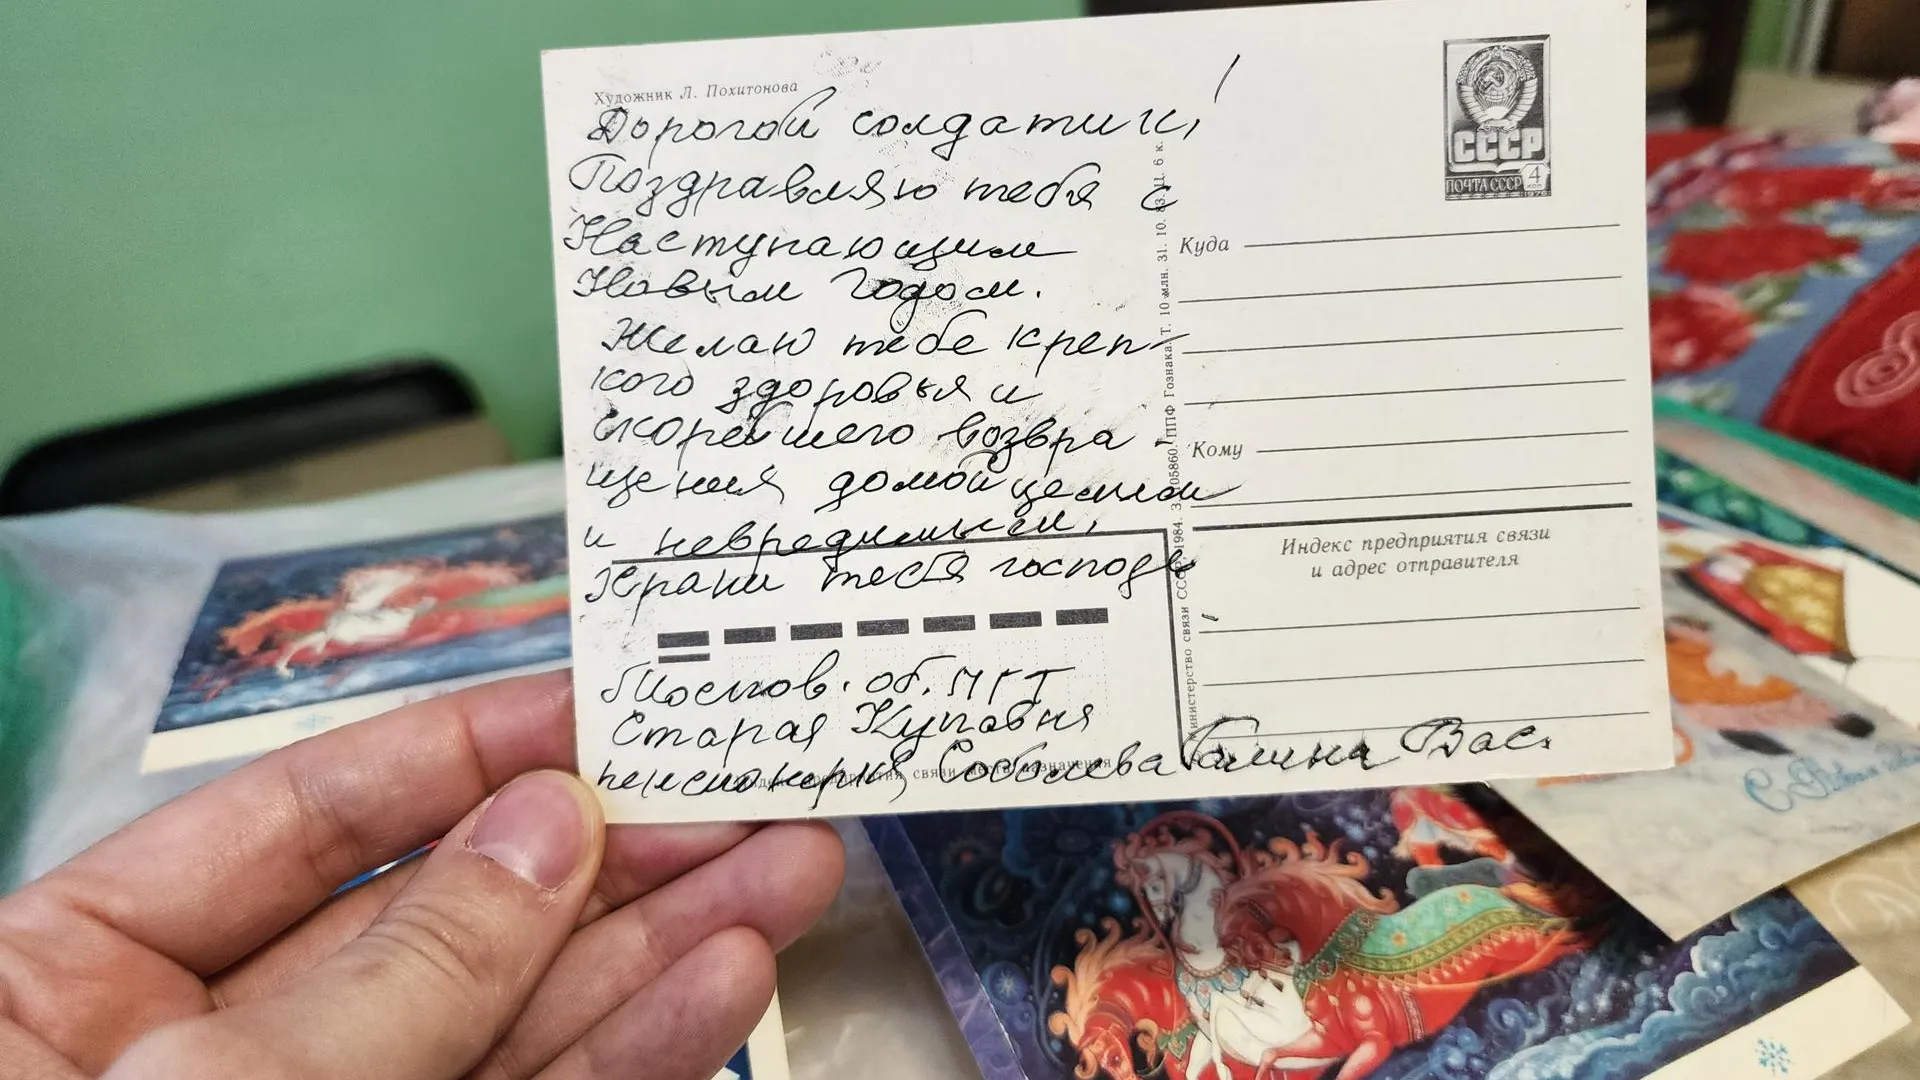 Художник Л. Похитонова
Дорогой солдатик!
Поздравляю тебя с
Наступающим
Новым Годом.
Желаю тебе креп-
кого здоровья и
скорейшего возвра-
щения домой целым
и невредимым.
Храни тебя господь
Москов. об. МГТ
Старая Купавна
пенсионерка Соболева Галина Вас.
СССР
ПОЧТА СССР 4 коп
1976
Куда
Кому
Индекс предприятия связи
и адрес отправителя
Министерство связи СССР, 1984. З. 105860. ППФ Гознака. Т. 10 млн. 31. 10. 83. Ц. 6 к.